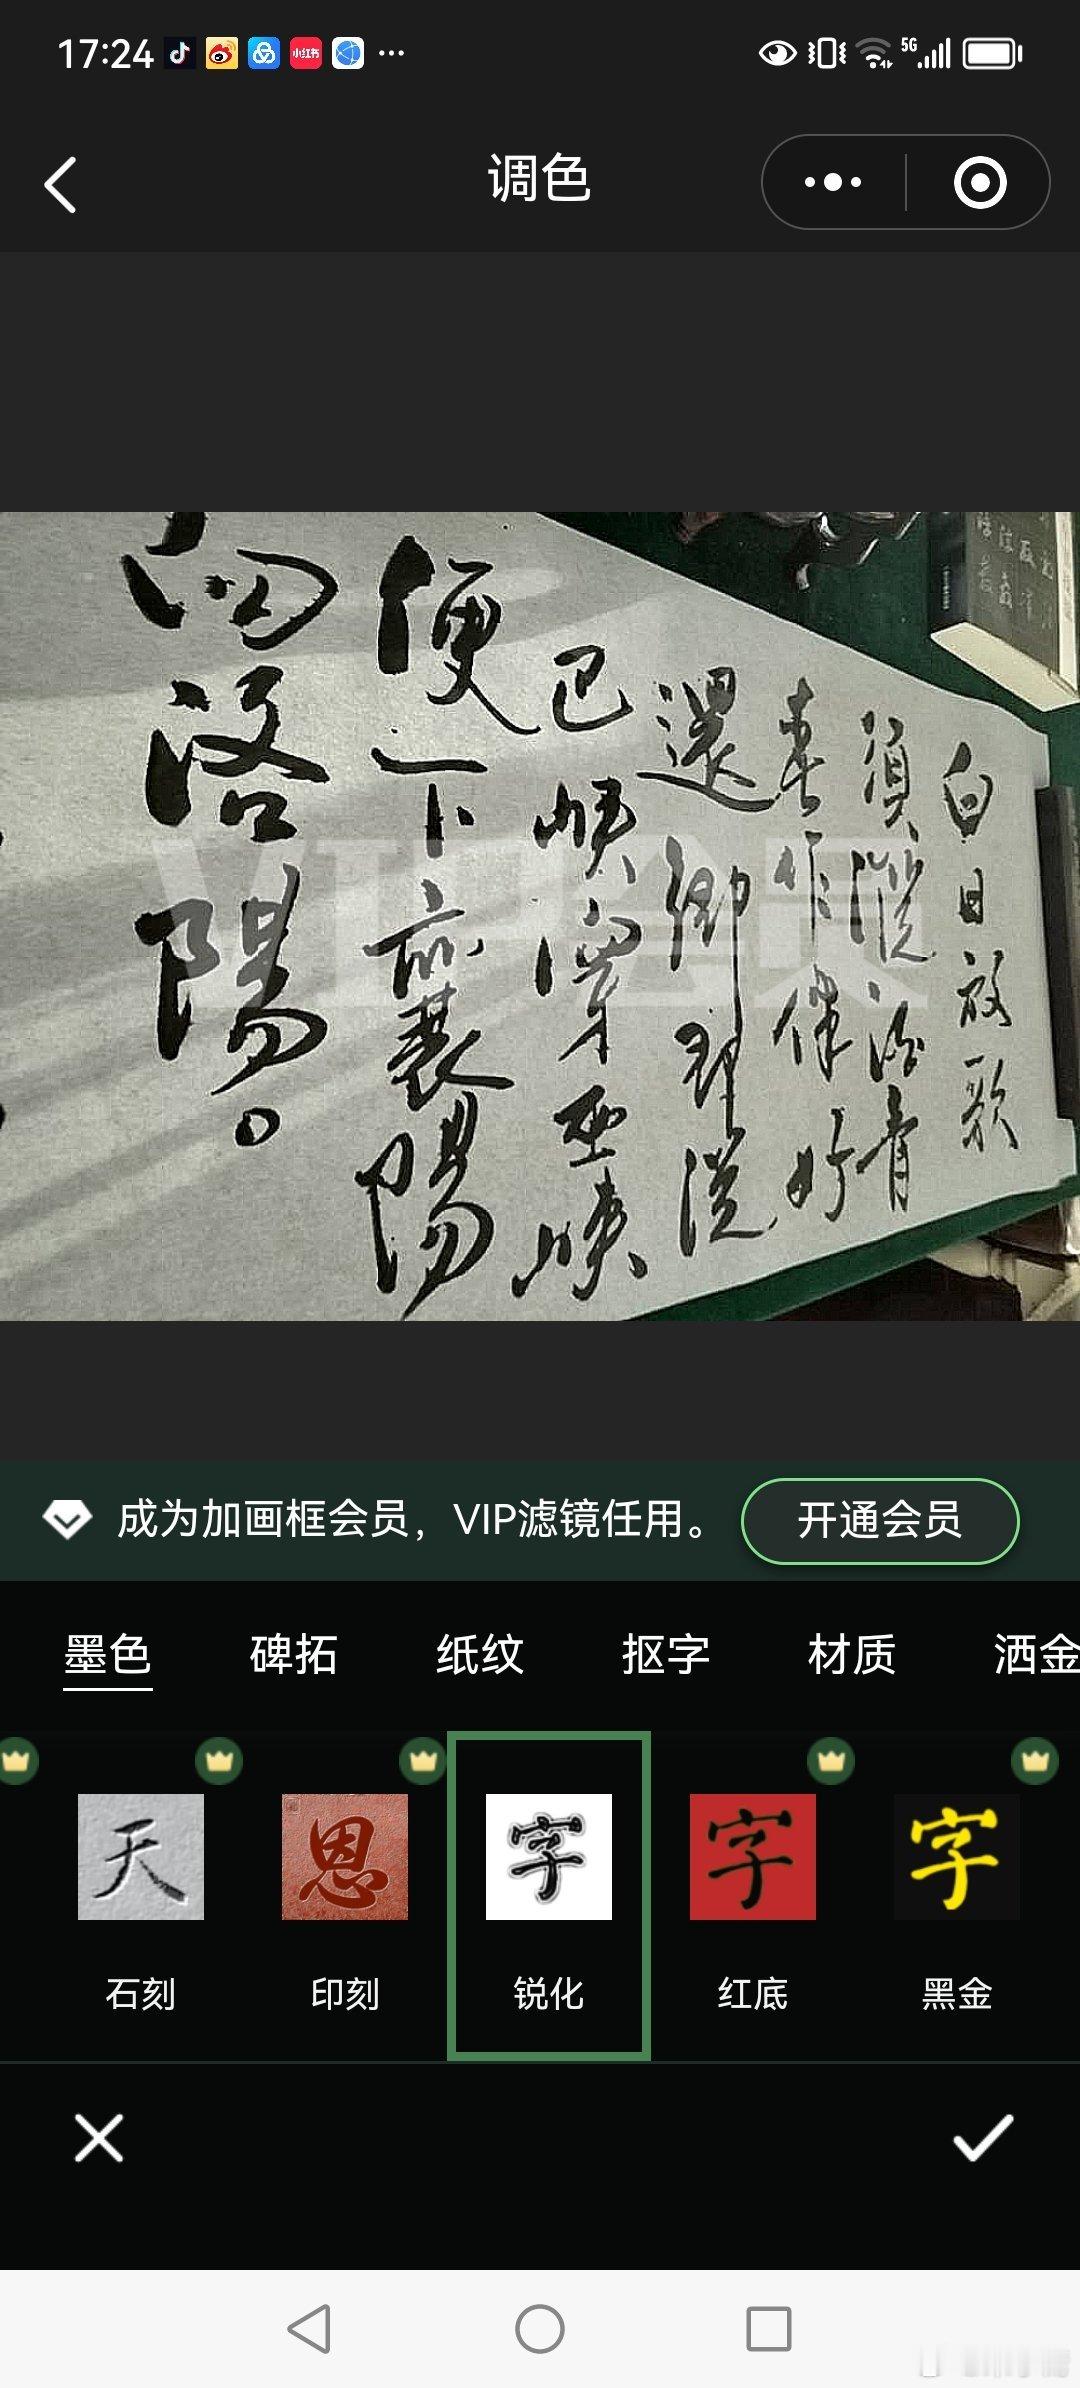 17:24
小红书
5G
调色
白日放歌
須縱酒青
春作伴好
還鄉即從
巴峽穿巫峽
便下襄陽
向洛陽。
VIP会员
成为加画框会员，VIP滤镜任用。 开通会员
墨色 碑拓 纸纹 抠字 材质 洒金
天 恩 字 字 字
石刻 印刻 锐化 红底 黑金